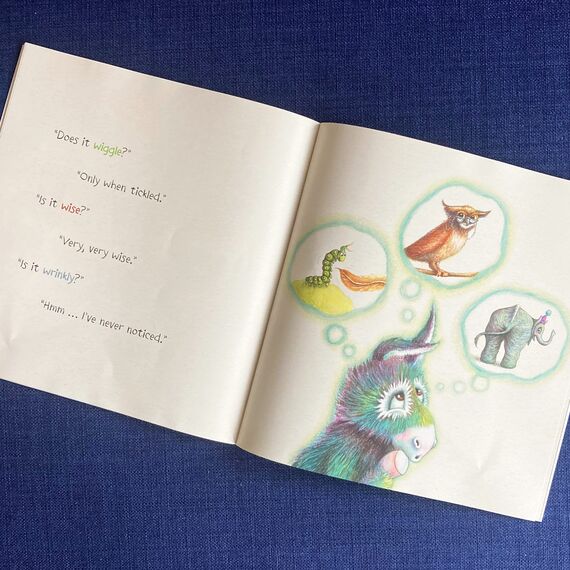 "Does it wiggle?"
"Only when tickled."
"Is it wise?"
"Very, very wise."
"Is it wrinkly?"
"Hmm ... I've never noticed."